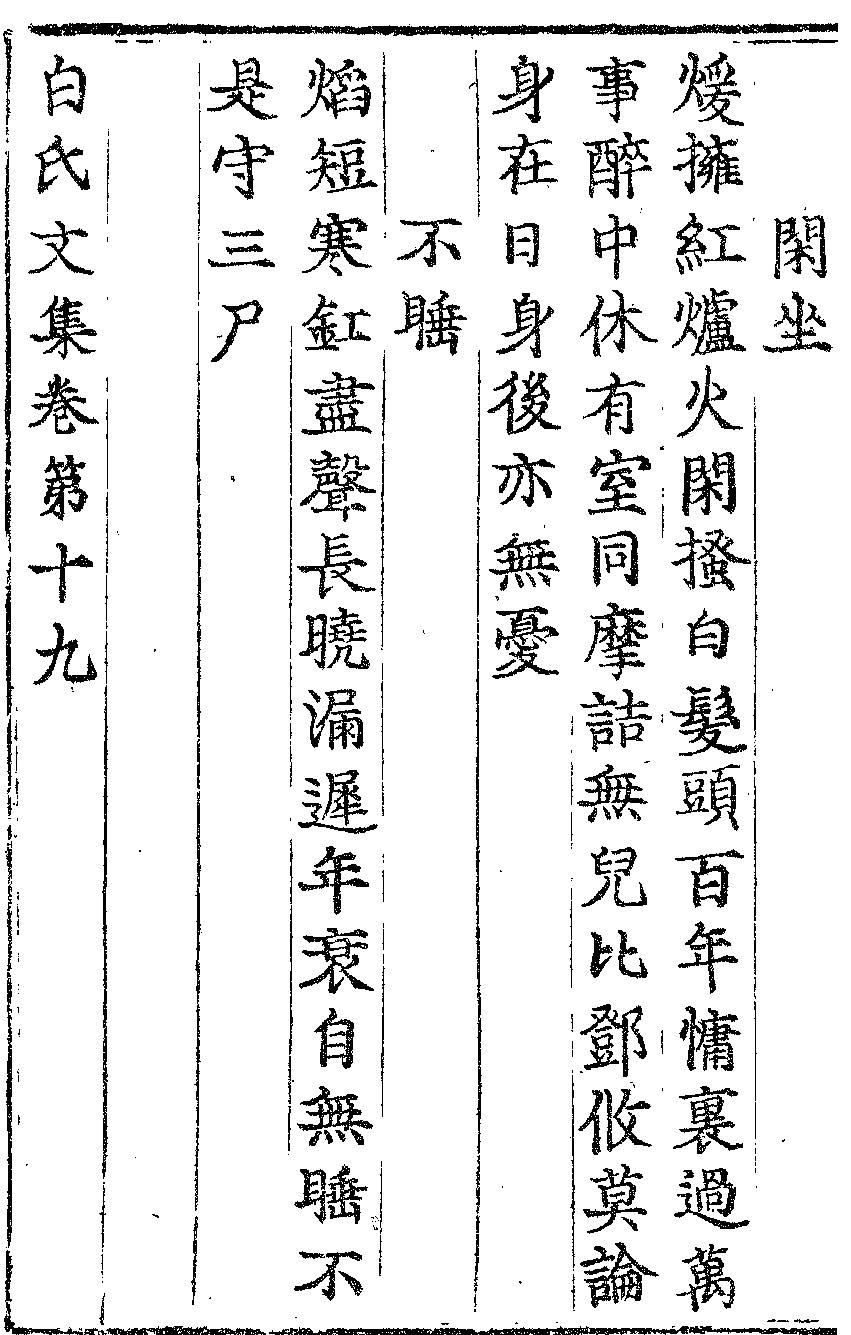 閑坐
煖擁紅爐火閑搔白髮頭百年慵裏過萬
事醉中休有室同摩詰無兒比鄧攸莫論
身在日身後亦無憂
不睡
焰短寒缸盡聲長曉漏遲年衰自無睡不
是守三尸
白氏文集卷第十九